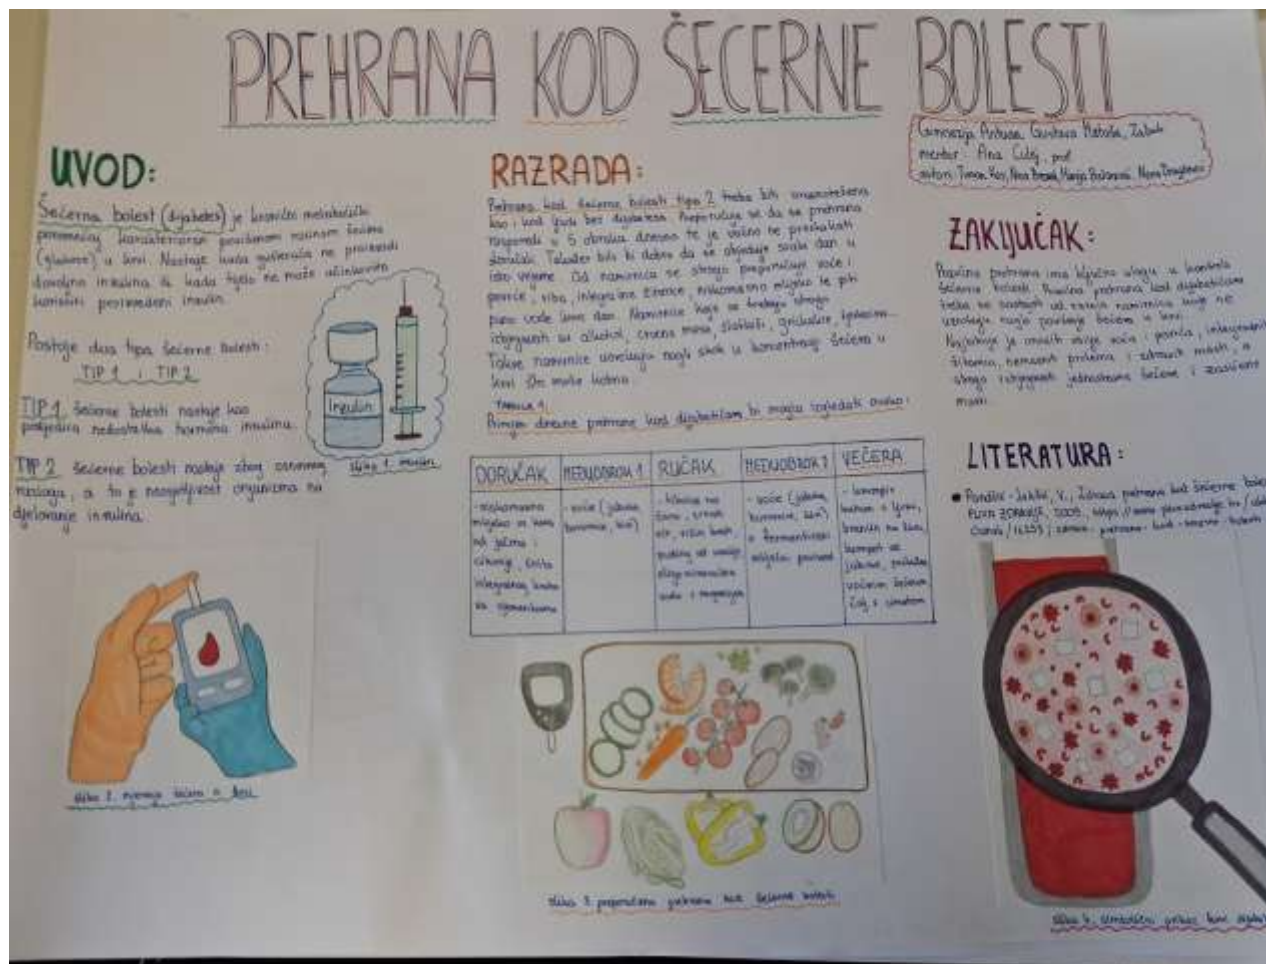 PREHRANA KOD ŠEĆERNE BOLESTI
Gimnazija Antuna Gustava Matoša, Zabok
mentor: Ana prof.
autori:
UVOD:
Šećerna bolest (dijabetes) je kronični metabolički
poremećaj karakteriziran povišenom razinom šećera
(glukoze) u krvi. Nastaje kada gušterača ne proizvodi
dovoljno inzulina ili kada tijelo ne može učinkovito
koristiti proizvedeni inzulin.
Postoje dva tipa šećerne bolesti:
TIP 1 i TIP 2
TIP 1 šećerne bolesti nastaje kao
posljedica nedostatka hormona inzulina.
TIP 2 šećerne bolesti nastaje zbog
razloga, a to je neosjetljivost organizma na
djelovanje inzulina.
Inzulin
slika 1. inzulin
slika 2. mjerenje šećera u krvi
RAZRADA:
Prehrana kod šećerne bolesti tipa 2 treba biti uravnotežena
kao i kod ljudi bez dijabetesa. Preporučuje se da se prehrana
rasporedi u 5 obroka dnevno te je važno ne preskakati
doručak. Također bilo bi dobro da se objeduje svaki dan u
isto vrijeme. Od namirnica se strogo preporučuje voće i
povrće, riba, integralne žitarice, niskomasno mlijeko te piti
puno vode kroz dan. Namirnice koje se trebaju strogo
izbjegavati su alkohol, crveno meso, slatkiši, grickalice,
Takve namirnice uzrokuju nagli skok u koncentraciji šećera u
krvi što može
TABLICA 1.
Primjer dnevne prehrane kod dijabetičara bi mogla izgledati ovako:
DORUČAK
MEĐUOBROK 1
RUČAK
MEĐUOBROK 2
VEČERA
- niskomasno
mlijeko
od ječma i
integralnog kruha
sa sjemenkama
- voće (jabuka,
- voće (jabuka,
i fermentirani
mliječni proizvod
- krumpir
kuhan u ljusci,
kompot od
jabuke,
voćnim šećerom,
čaj s limunom
slika 3. preporučena prehrana kod šećerne bolesti
ZAKLJUČAK:
Pravilna prehrana ima ključnu ulogu u kontroli
šećerne bolesti. Pravilna prehrana kod dijabetičara
treba se sastojati od namirnica koje ne
uzrokuju naglo povišenje šećera u krvi.
Najvažnije je unositi više voća i povrća, integralnih
žitarica, nemasnih proteina i zdravih masti, a
strogo izbjegavati jednostavne šećere i zasićene
masti.
LITERATURA:
V., Zdrava prehrana kod šećerne
PLIVA ZDRAVLJE, 2005.
slika 4. prikaz krvi